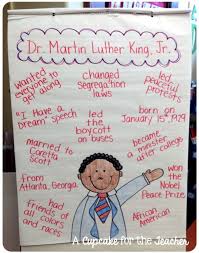 Dr. Martin Luther King, Jr.
wanted
everyone to
get along
changed
Segregation
laws
led
peaceful
protests
"I Have a
Dream" speech
led the
boycott
on buses
born on
January 15, 1929
married to
Coretta
Scott
became a
minister
after college
from
Atlanta, Georgia
won
Nobel
Peace Prize
had friends
of all
colors
and races
African
American
A Cupcake for the Teacher